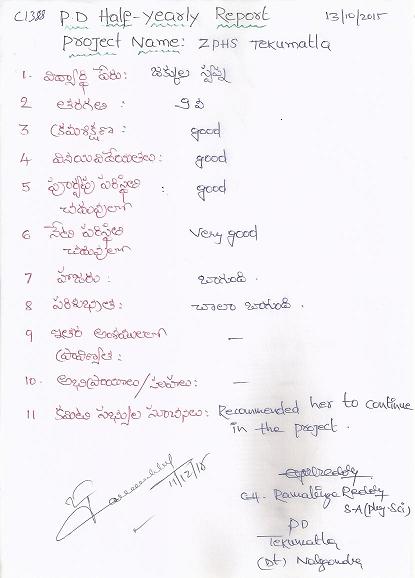 C1388 P.D Half-yearly Report 13/10/2015
Project Name: ZPHS Tekumatla
1. విద్యార్థి పేరు: జక్కుల స్వప్న
2 తరగతి : 9 వి
3 క్రమశిక్షణ : good
4 వినయవిధేయతలు: good
5 పూర్వపు పరిస్థితి : good
చదువులో
6 నేటి పరిస్థితి Very good
చదువులో
7 హాజరు: బాగుంది .
8 పరిశుభ్రత: చాలా బాగుంది .
9 ఇతర అంశములలో —
ప్రావీణ్యత :
10. అభిప్రాయాలు/సలహాలు: —
11 కమిటి సభ్యుల సూచనలు: Recommended her to continue
in the project .
11/12/15
CH. Ramalinga Reddy
S-A (Phy-Sci)
PD
Tekumatla
(Dt) Nalgonda